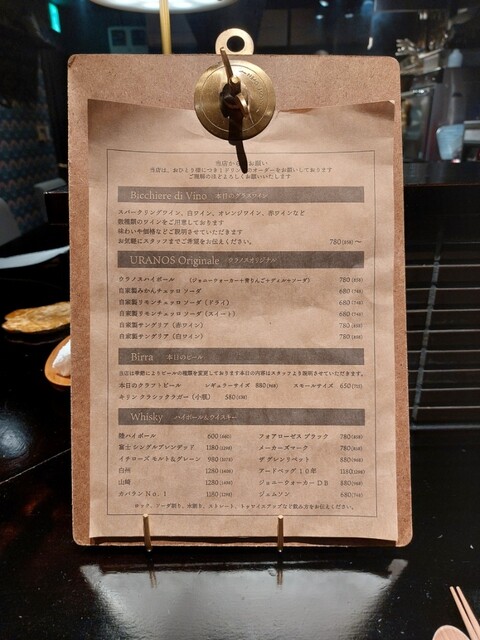 当店からのお願い
当店は、おひとり様につき1ドリンクのオーダーをお願いしております
ご理解のほどよろしくお願いいたします
Bicchiere di Vino 本日のグラスワイン
スパークリングワイン、白ワイン、オレンジワイン、赤ワインなど
数種類のワインをご用意しております
味わいや価格などご説明させていただきます
お気軽にスタッフまでご希望をお伝えください。 780(858)～
URANOS Originale ウラノスオリジナル
ウラノスハイボール (ジョニーウォーカー+青りんご+ディル+ソーダ) 780(858)
自家製みかんチェッロ ソーダ 680(748)
自家製リモンチェッロ ソーダ（ドライ） 680(748)
自家製リモンチェッロ ソーダ（スイート） 680(748)
自家製サングリア（赤ワイン） 780(858)
自家製サングリア（白ワイン） 780(858)
Birra 本日のビール
当店は季節によりビールの種類を変更しております本日の内容はスタッフより説明させていただきます。
本日のクラフトビール レギュラーサイズ 880(968) スモールサイズ 650(715)
キリン クラシックラガー（小瓶） 580(638)
Whisky ハイボール&ウイスキー
ハイボール 600(660) フォアローゼス ブラック 780(858)
富士 シングルブレンデッド 1180(1298) メーカーズマーク 780(858)
イチローズ モルト&グレーン 980(1078) ザ グレンリベット 880(968)
白州 1280(1408) アードベッグ 10年 1180(1298)
山崎 1280(1408) ジョニーウォーカー DB 880(968)
カバラン No. 1 1180(1298) ジェムソン 680(748)
ロック、ソーダ割り、水割り、ストレート、トゥワイスアップなど飲み方をお伝えください。